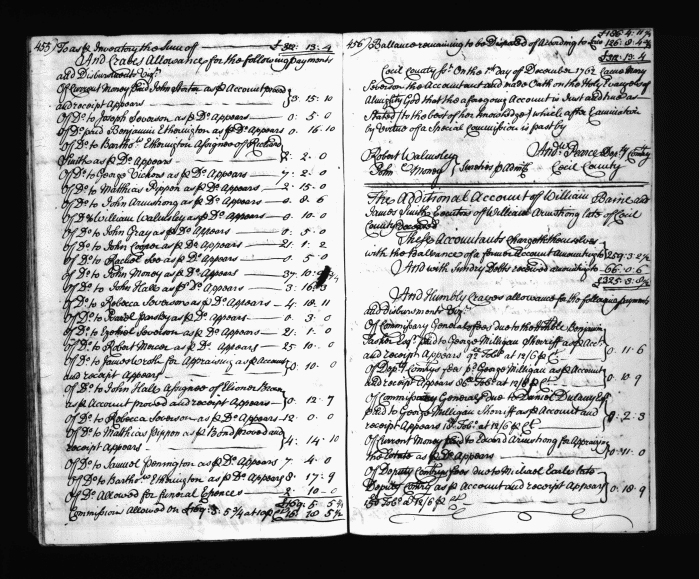 455) To as p Inventory the Sume of £312: 13: 4
And Craves Allowance for the following payments
and Disbursments Vizt
Of Current Money paid John Stoton as p Account proved
and receipt Appears 3: 15: 10
Of Do to Joseph Severson as p Do Appears 0: 5: 0
Of Do paid Benjamin Etherington as p Do Appears 0: 16: 10
Of Do to Bartho. Etherington Assignee of Richard
Smith as p Do Appears 2: 2: 0
Of Do to George Vickors as p Do Appears 7: 2: 0
Of Do to Matthias Pippon as p Do Appears 2: 15: 0
Of Do to John Armstrong as p Do Appears 0: 8: 6
Of Do William Walmsley as p Do Appears 0: 10: 0
Of Do to John Gray as p Do Appears 0: 5: 0
Of Do to John Cooper as p Do Appears 21: 1: 2
Of Do to Rachel Lee as p Do Appears 0: 5: 0
Of Do to John Money as p Do Appears 37: 10:
Of Do to John Hall as p Do Appears 3: 16:
Of Do to Rebecca Severson as p Do Appears 4: 18: 11
Of Do to as p Do Appears 0: 3: 0
Of Do to Ezekiel Severson as p Do Appears 21: 1: 0
Of Do to Robert Mercer as p Do Appears 25: 10: 0
Of Do to James Worth for Appraising as p Account
and receipt Appears 0: 10: 0
Of Do to John Hall Assignee of Elionor
as p Account proved and receipt Appears 0: 12: 7
Of Do to Rebecca Severson as p Do Appears 12: 0: 0
Of Do to Matthias Pippon as p Bond proved and
receipt Appears 4: 14: 10
Of Do to Samuel Pennington as p Do Appears 7: 4: 0
Of Do to Bartho. Etherington as p Do Appears 8: 17: 9
Of Do Allowed for Funeral Expences 2: 10: 0
£169: 5: 5¾
Commission Allowed on £169: 5: 5¾ at 10 p Ct 16: 18: 5½
£186: 4: 11¼
456) Ballance remaining to be Disposed of According to Law 126: 8: 4¾
£312: 13: 4
Cecil County Sct. On the 1st day of December 1762 Came Mary
Severson the Accountant and made Oath on the Holy Evangels of
Almighty God that the aforegoing Account is Just and true as
Stated (to the best of her knowledge) which after Examination
by Virtue of a Special Commission is past by
Andw Pearce Depty Comsry
Robert Walmsley
John Money } Sureties p Admx Cecil County
The Additional Account of William Barne and
James Smith Executors of William Armstrong late of Cecil
County Deceased
These Accountants Charge themselves
with the Ballance of a former Account Amounting to 259: 3: 2½
And with Sundry Debts received amounting to 66: 0: 6
£325: 3: 8½
And Humbly Craves allowance for the following payments
and disbursments Vizt
Of Commissary Generals fees due to the Honble Benjamin
Tasker Esqr paid to George Milligan Sherriff as p Acct
and receipt Appears at 12/6 p Ct 0: 11: 6
Of Depty Comrys fees p George Milligan as p Account
and receipt Appears at 12/6 p Ct 0: 10: 9
Of Commissary General due to Daniel Dulany Esqr
paid to George Milligan Sherriff as p Account and
receipt Appears at 12/6 p Ct 8: 2: 3
Of Current Money paid to Edward Armstrong for Appraising
the Estate as p Do Appears 0: 11: 0
Of Deputy Comrys fees due to Michael Earle late
Deputy Comry as p Account and receipt Appears 0: 18: 9
at 12/6 p Ct